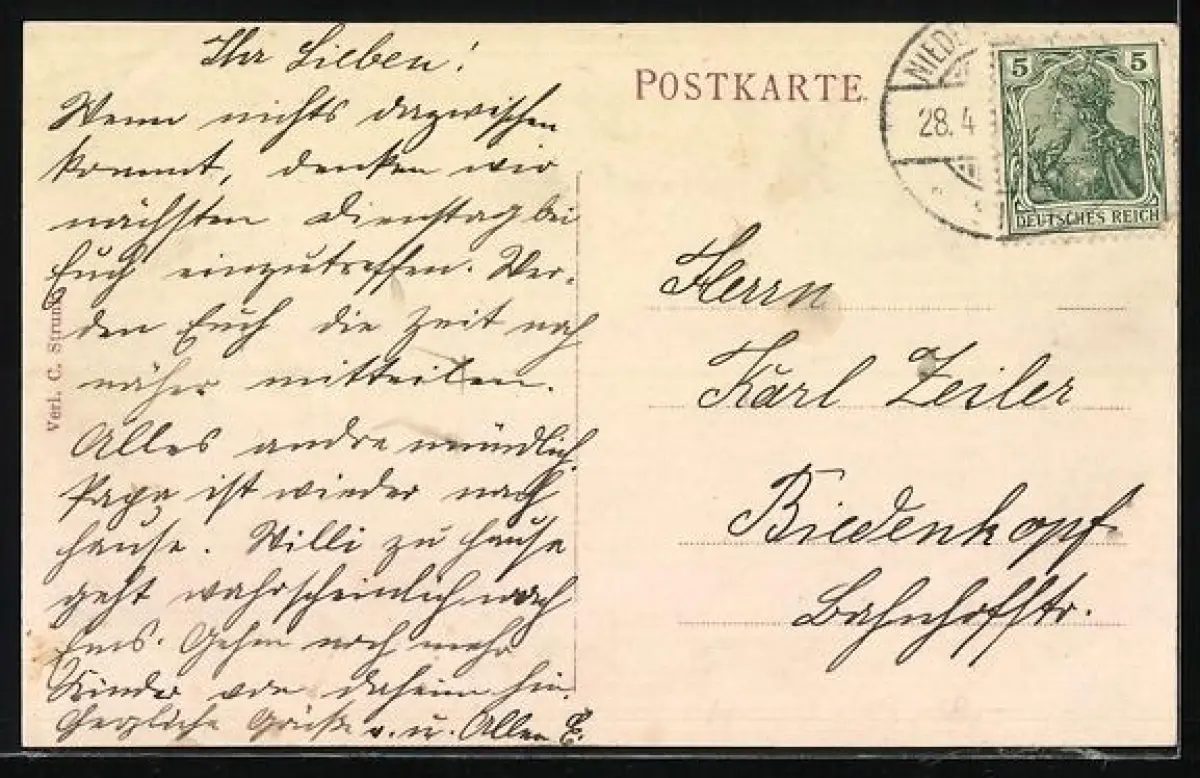 Ihr Lieben!
Wenn nichts dazwischen
kommt, denken wir
nächsten Dienstag bei
Euch einzutreffen. Wer-
den Euch die Zeit noch
näher mitteilen.
Alles andre mündlich.
Papa ist wieder nach
Hause. Willi zu Hause
geht wahrscheinlich nach
Ems. Gehen noch mehr
Kinder von daheim hin.
Herzliche Grüße v. u. Allen
Verl. C. Strunk
POSTKARTE
NIEDE
28.4
5 5
DEUTSCHES REICH
Herrn
Karl Zeiler
Biedenkopf
Bahnhofstr.